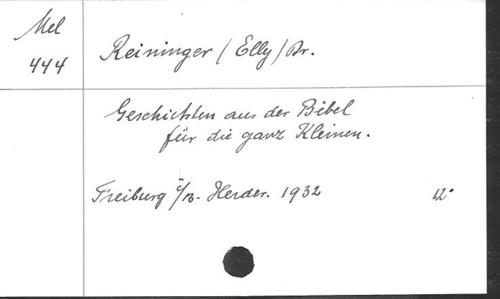 Mel
444
Reininger / Elly / Dr.
Geschichten aus der Bibel
für die ganz Kleinen.
Freiburg i/B. Herder. 1932 12°